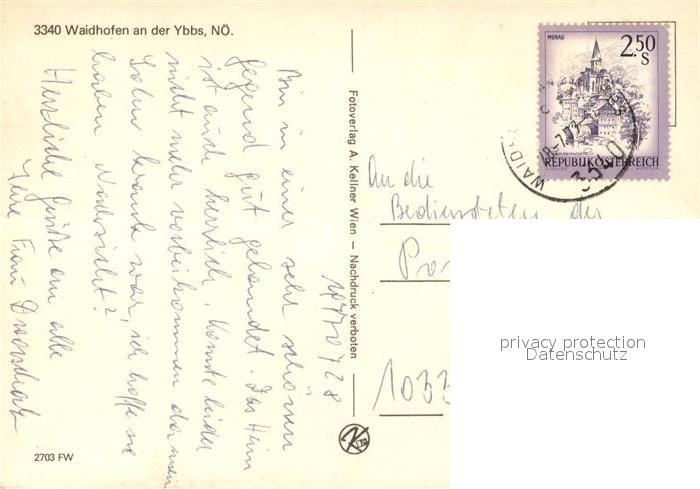 3340 Waidhofen an der Ybbs, NÖ.
Bin in einer sehr schönen
Gegend gut gelandet. Das Heim
ist auch herrlich. Konnte leider
nicht mehr vorbeikommen da mein
Sohn krank war, ich hoffe sie
haben Nachsicht?
Herzliche Grüße an alle
Ihre Frau
2703 FW
Fotoverlag A. Kellner Wien – Nachdruck verboten
An die
Bediensteten der
1033
MURAU
2.50
S
REPUBLIK ÖSTERREICH
WAIDH
3340
privacy protection
Datenschutz